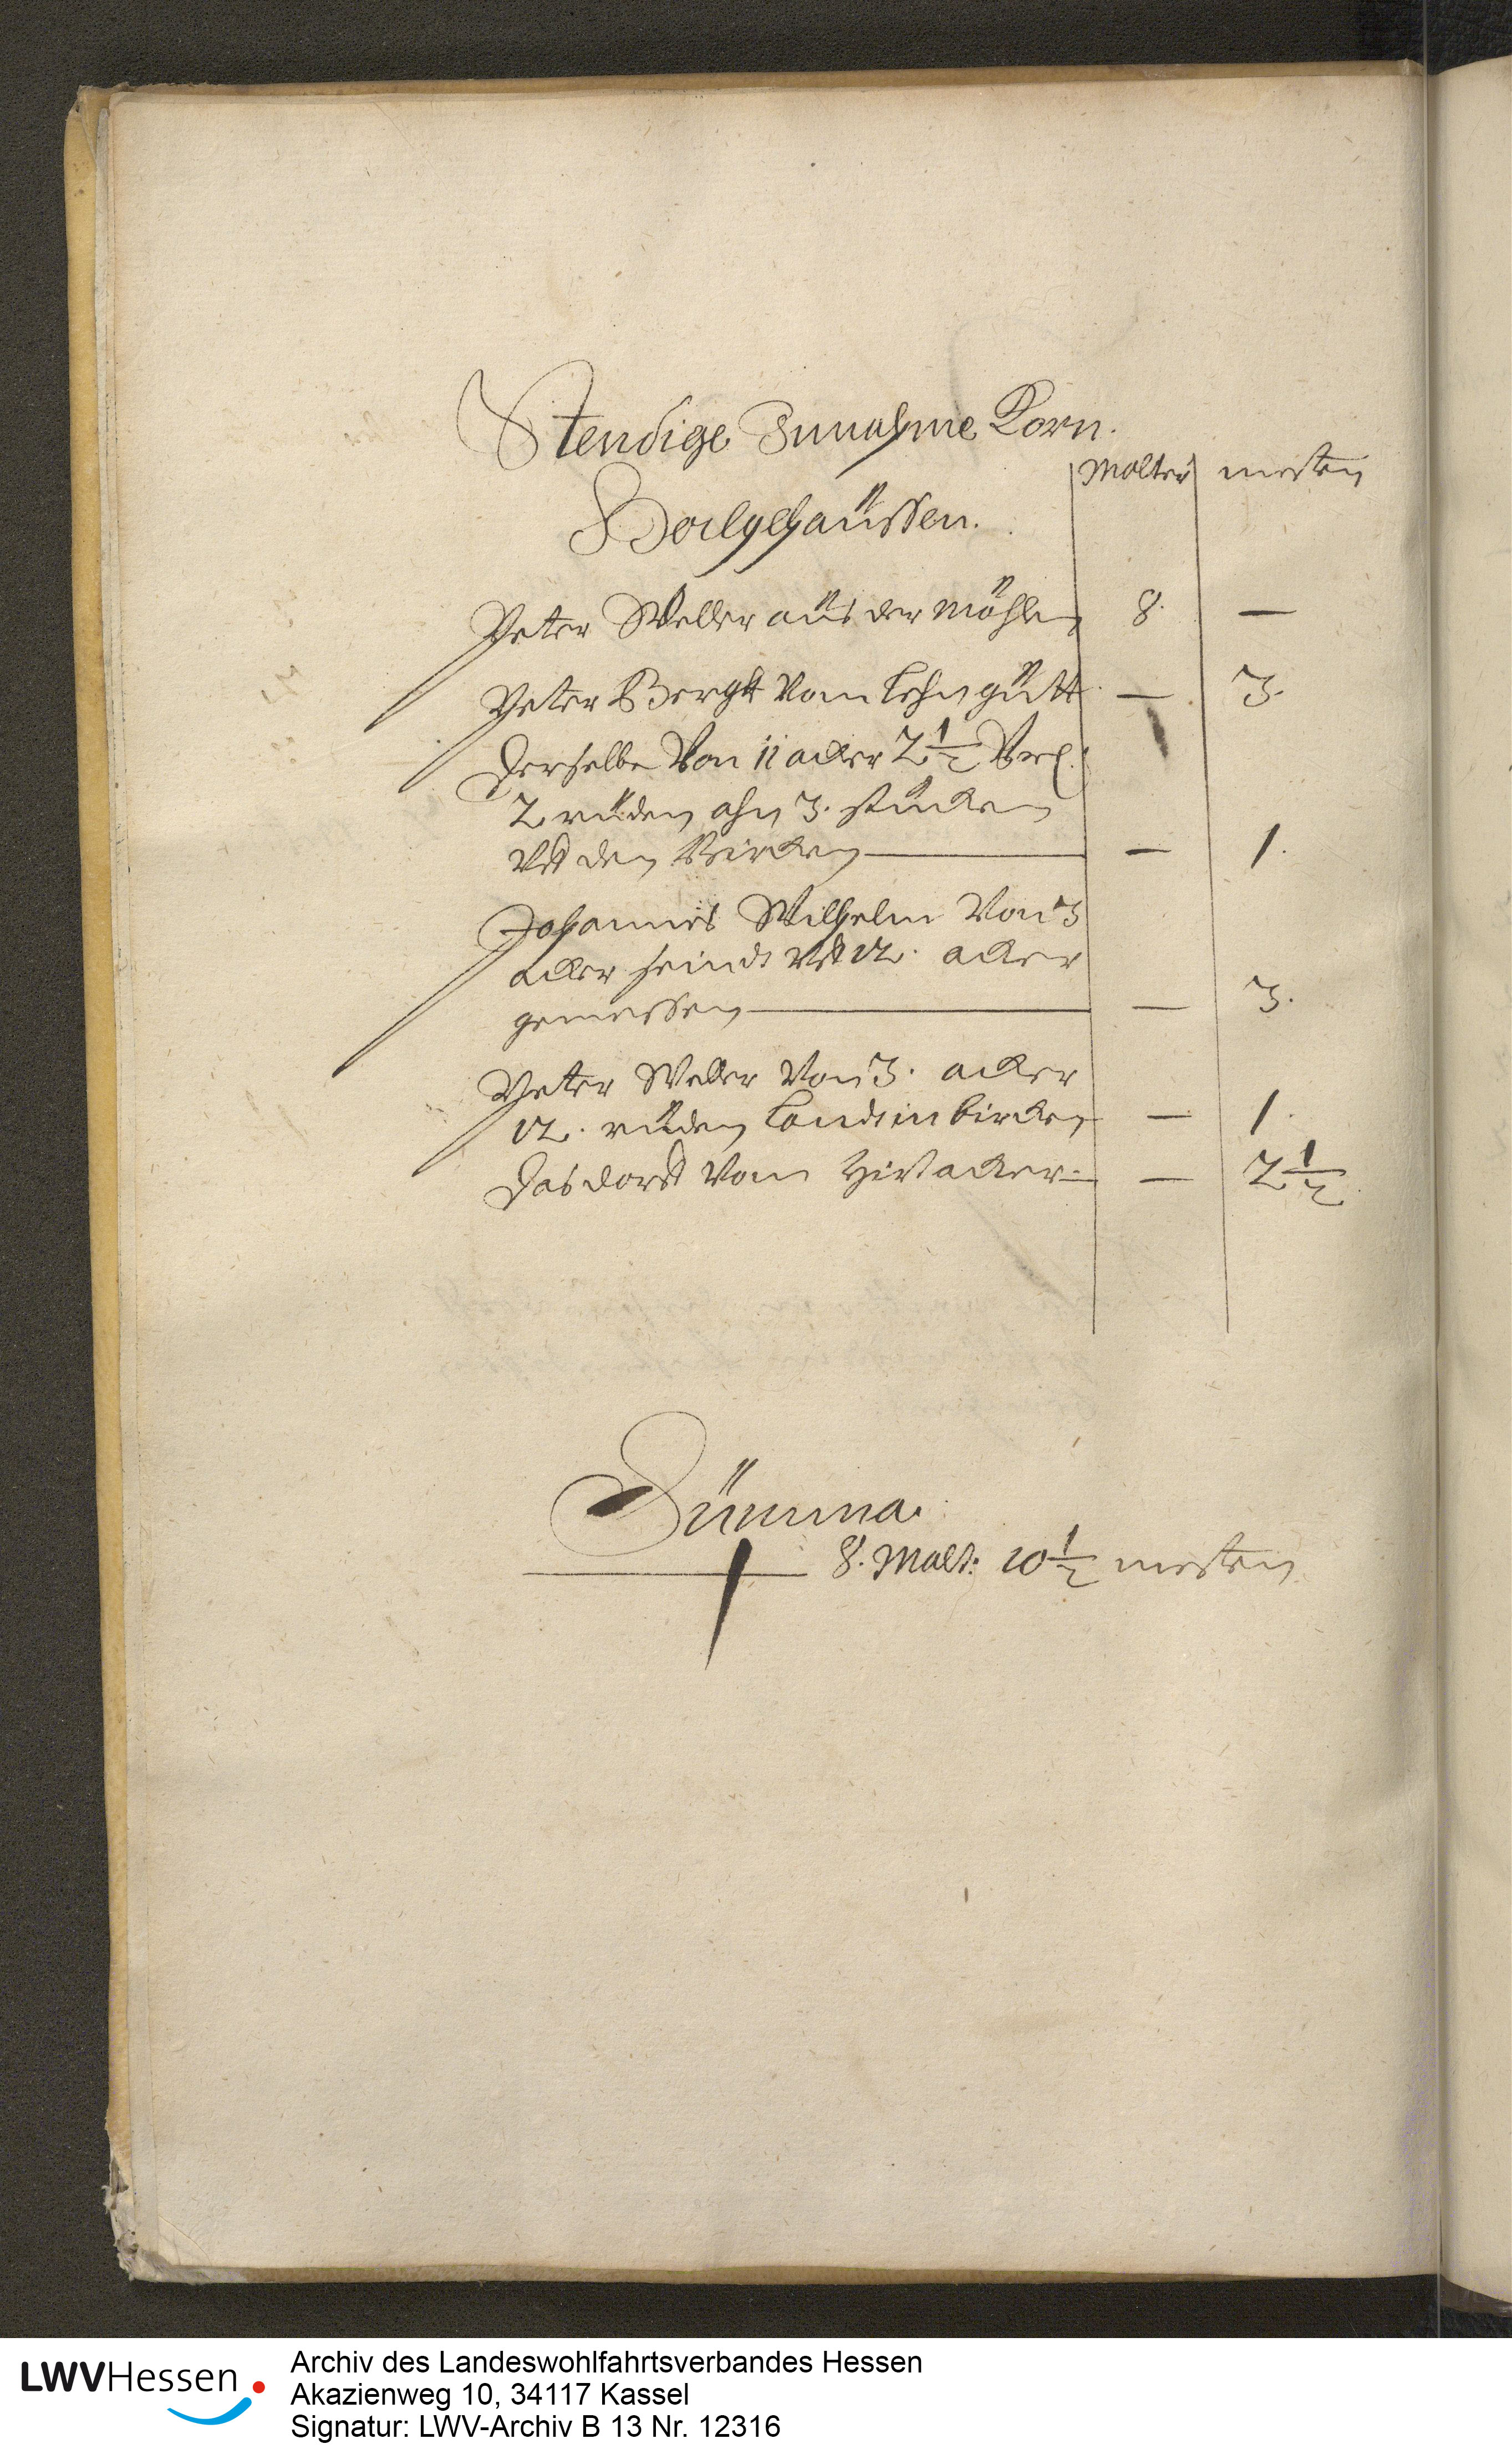 Stendige Innahme Korn.
Molter mesten
Boelgehaüssen.
Peter Weller aüs der möhlen 8. —
Peter Bergk Vom Lehngütt — 3.
Derselbe Von 11 acker 2 1/2 Vrl.
2 rüden ahn 3. stücken
Vff den Bircken — 1.
Johannes Wilhelm Von 3
acker seindt Vff 12. acker
gemessen — 3.
Peter Weller Von 3. acker
12. rüden Landt in bircken — 1.
Das dorff Vom acker — 2 1/2
Sümma.
8. Malt: 10 1/2 mesten
LWVHessen
Archiv des Landeswohlfahrtsverbandes Hessen
Akazienweg 10, 34117 Kassel
Signatur: LWV-Archiv B 13 Nr. 12316